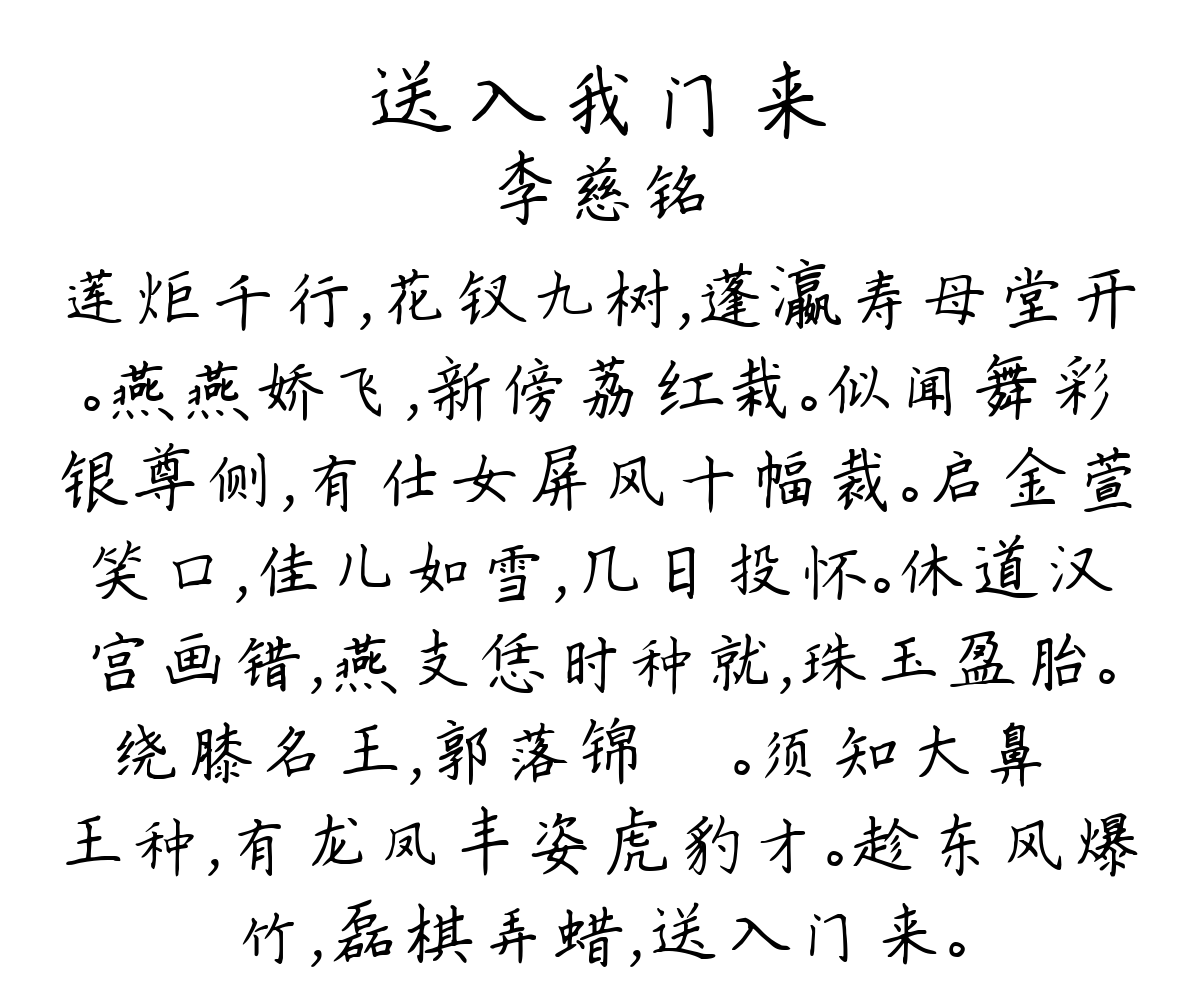 送入我门来
李慈铭
莲炬千行,花钗九树,蓬瀛寿母堂开
。燕燕娇飞,新傍荔红栽。似闻舞彩
银尊侧,有仕女屏风十幅裁。启金萱
笑口,佳儿如雪,几日投怀。休道汉
宫画错,燕支恁时种就,珠玉盈胎。
绕膝名王,郭落锦　。须知大鼻
王种,有龙凤丰姿虎豹才。趁东风爆
竹,磊棋弄蜡,送入门来。